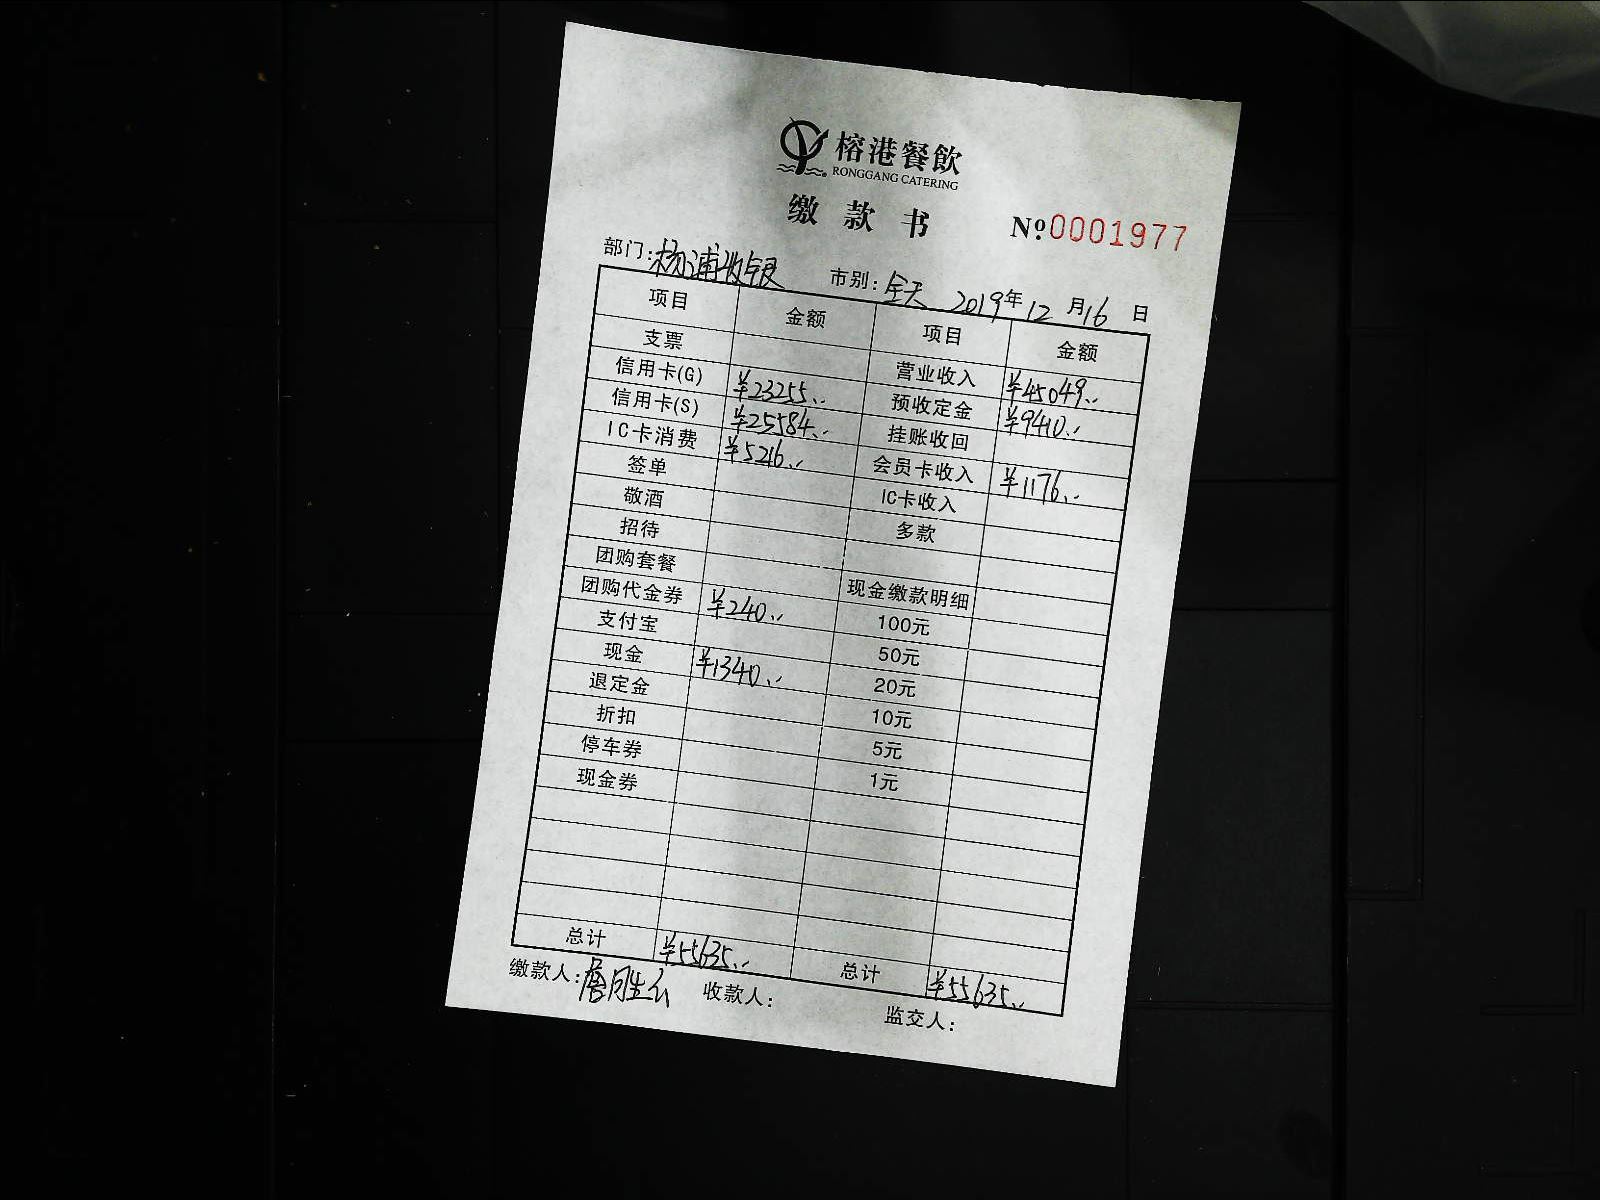 榕港餐飲
RONGGANG CATERING
缴款书 №0001977
部门:杨浦收银 市别:全天 2019年12月16日
项目 金额 项目 金额
支票 营业收入 ¥45049..
信用卡(G) ¥23255.. 预收定金 ¥9410..
信用卡(S) ¥25584.. 挂账收回
IC卡消费 ¥5216.. 会员卡收入 ¥1176..
签单 IC卡收入
敬酒 多款
招待
团购套餐 现金缴款明细
团购代金券 ¥240.. 100元
支付宝 50元
现金 ¥1340.. 20元
退定金 10元
折扣 5元
停车券 1元
现金券
总计 ¥55635.. 总计 ¥55635..
缴款人: 收款人: 监交人: